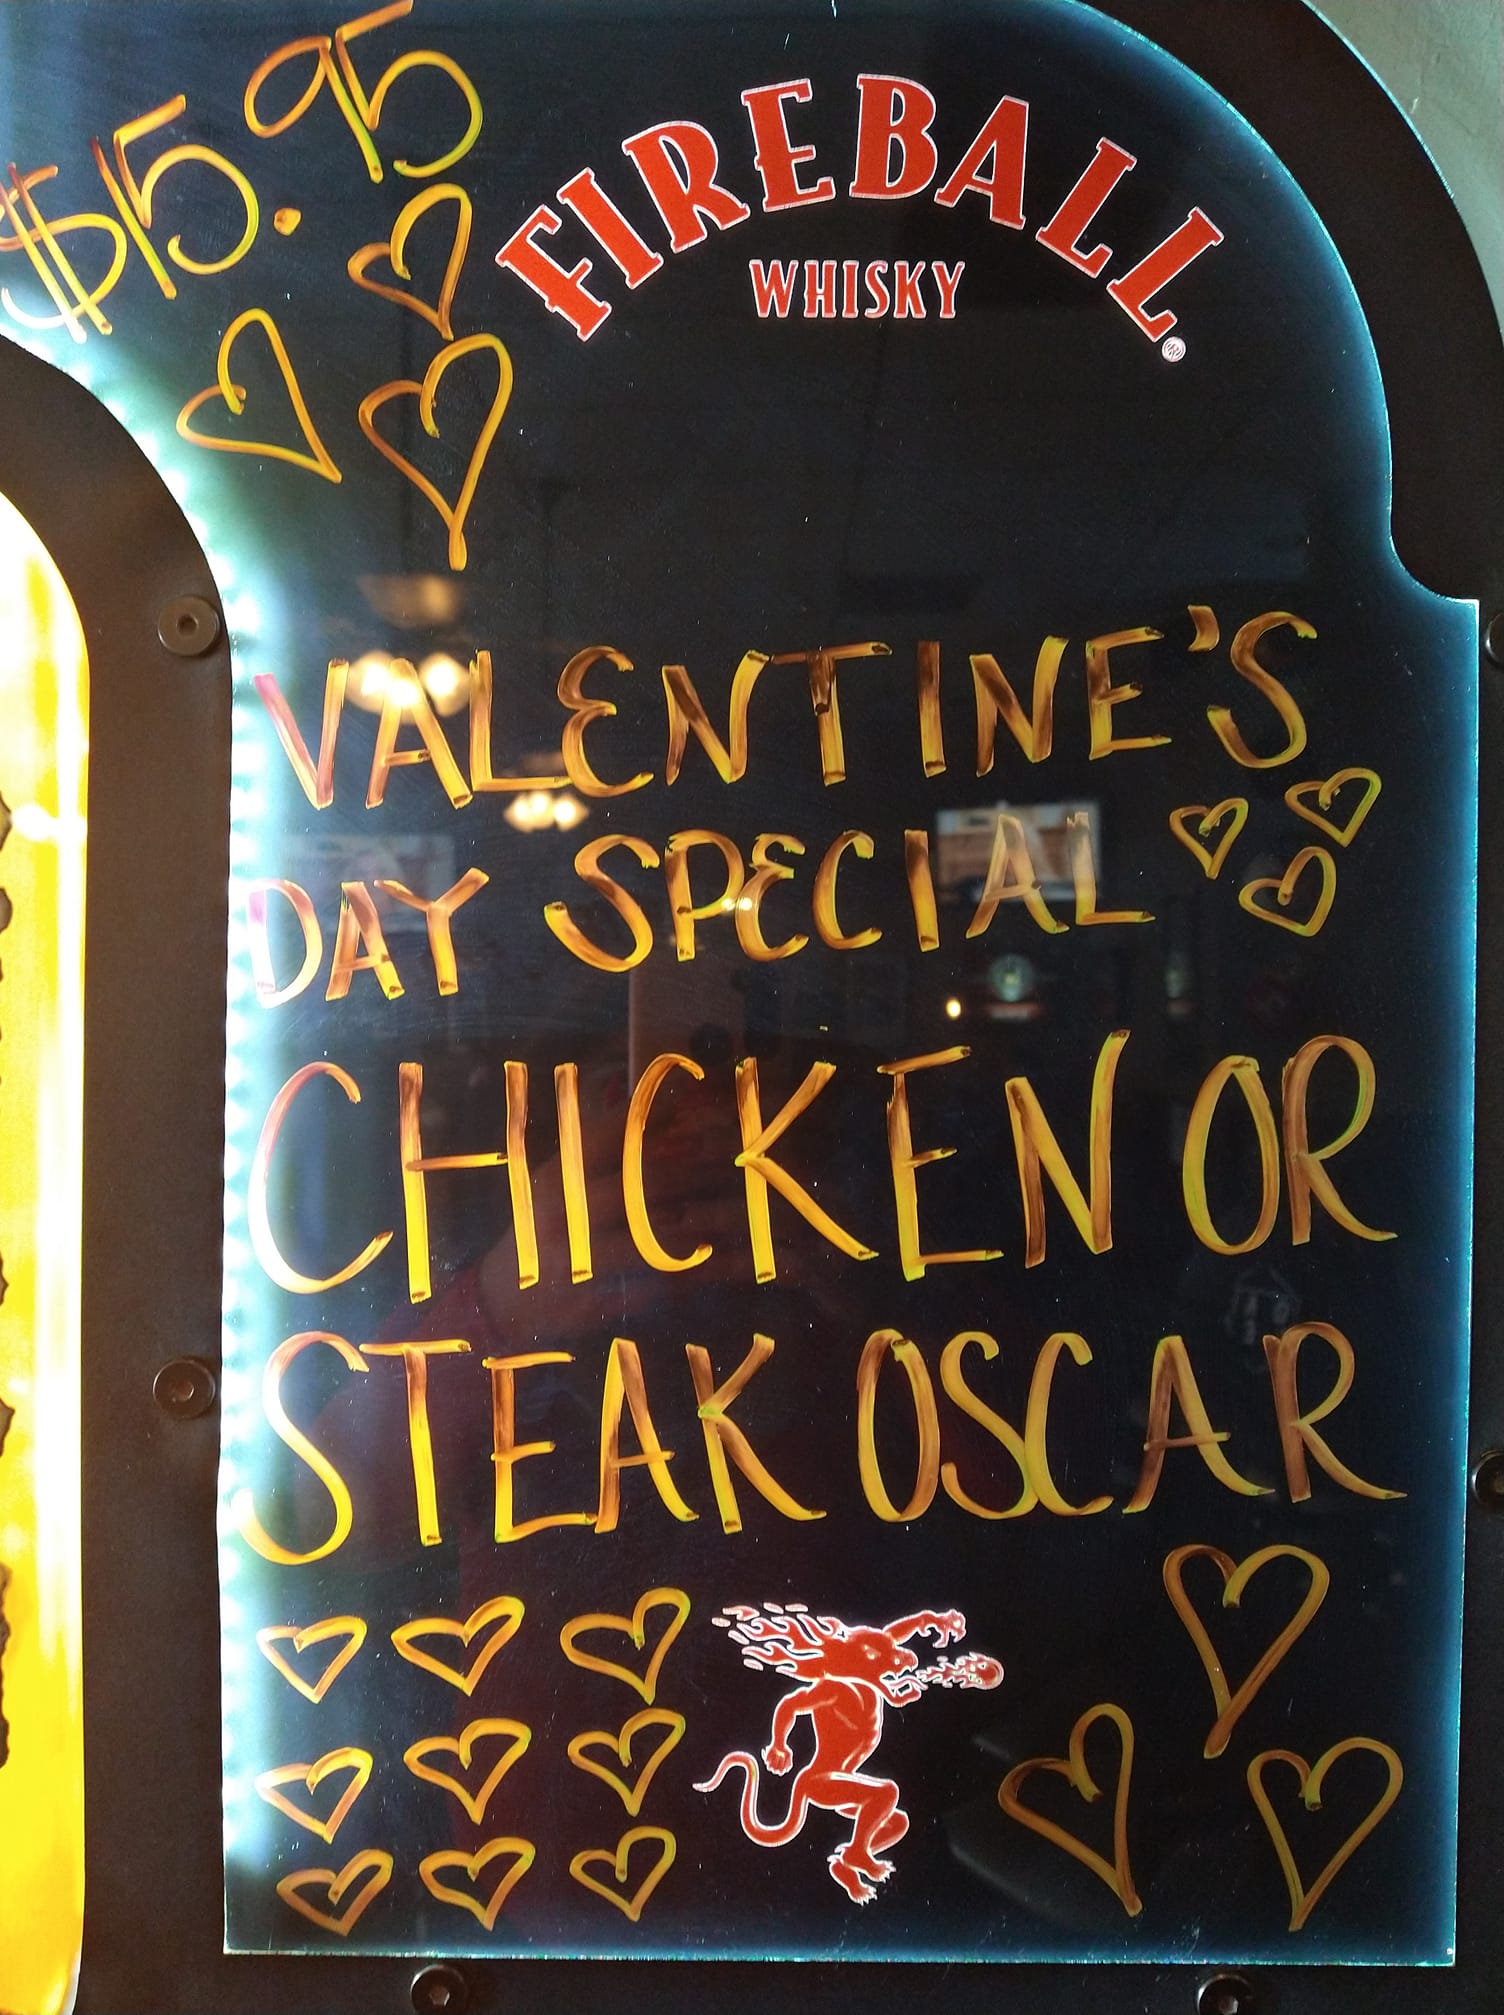 $15.95
FIREBALL
WHISKY
VALENTINE'S
DAY SPECIAL
CHICKEN OR
STEAK OSCAR